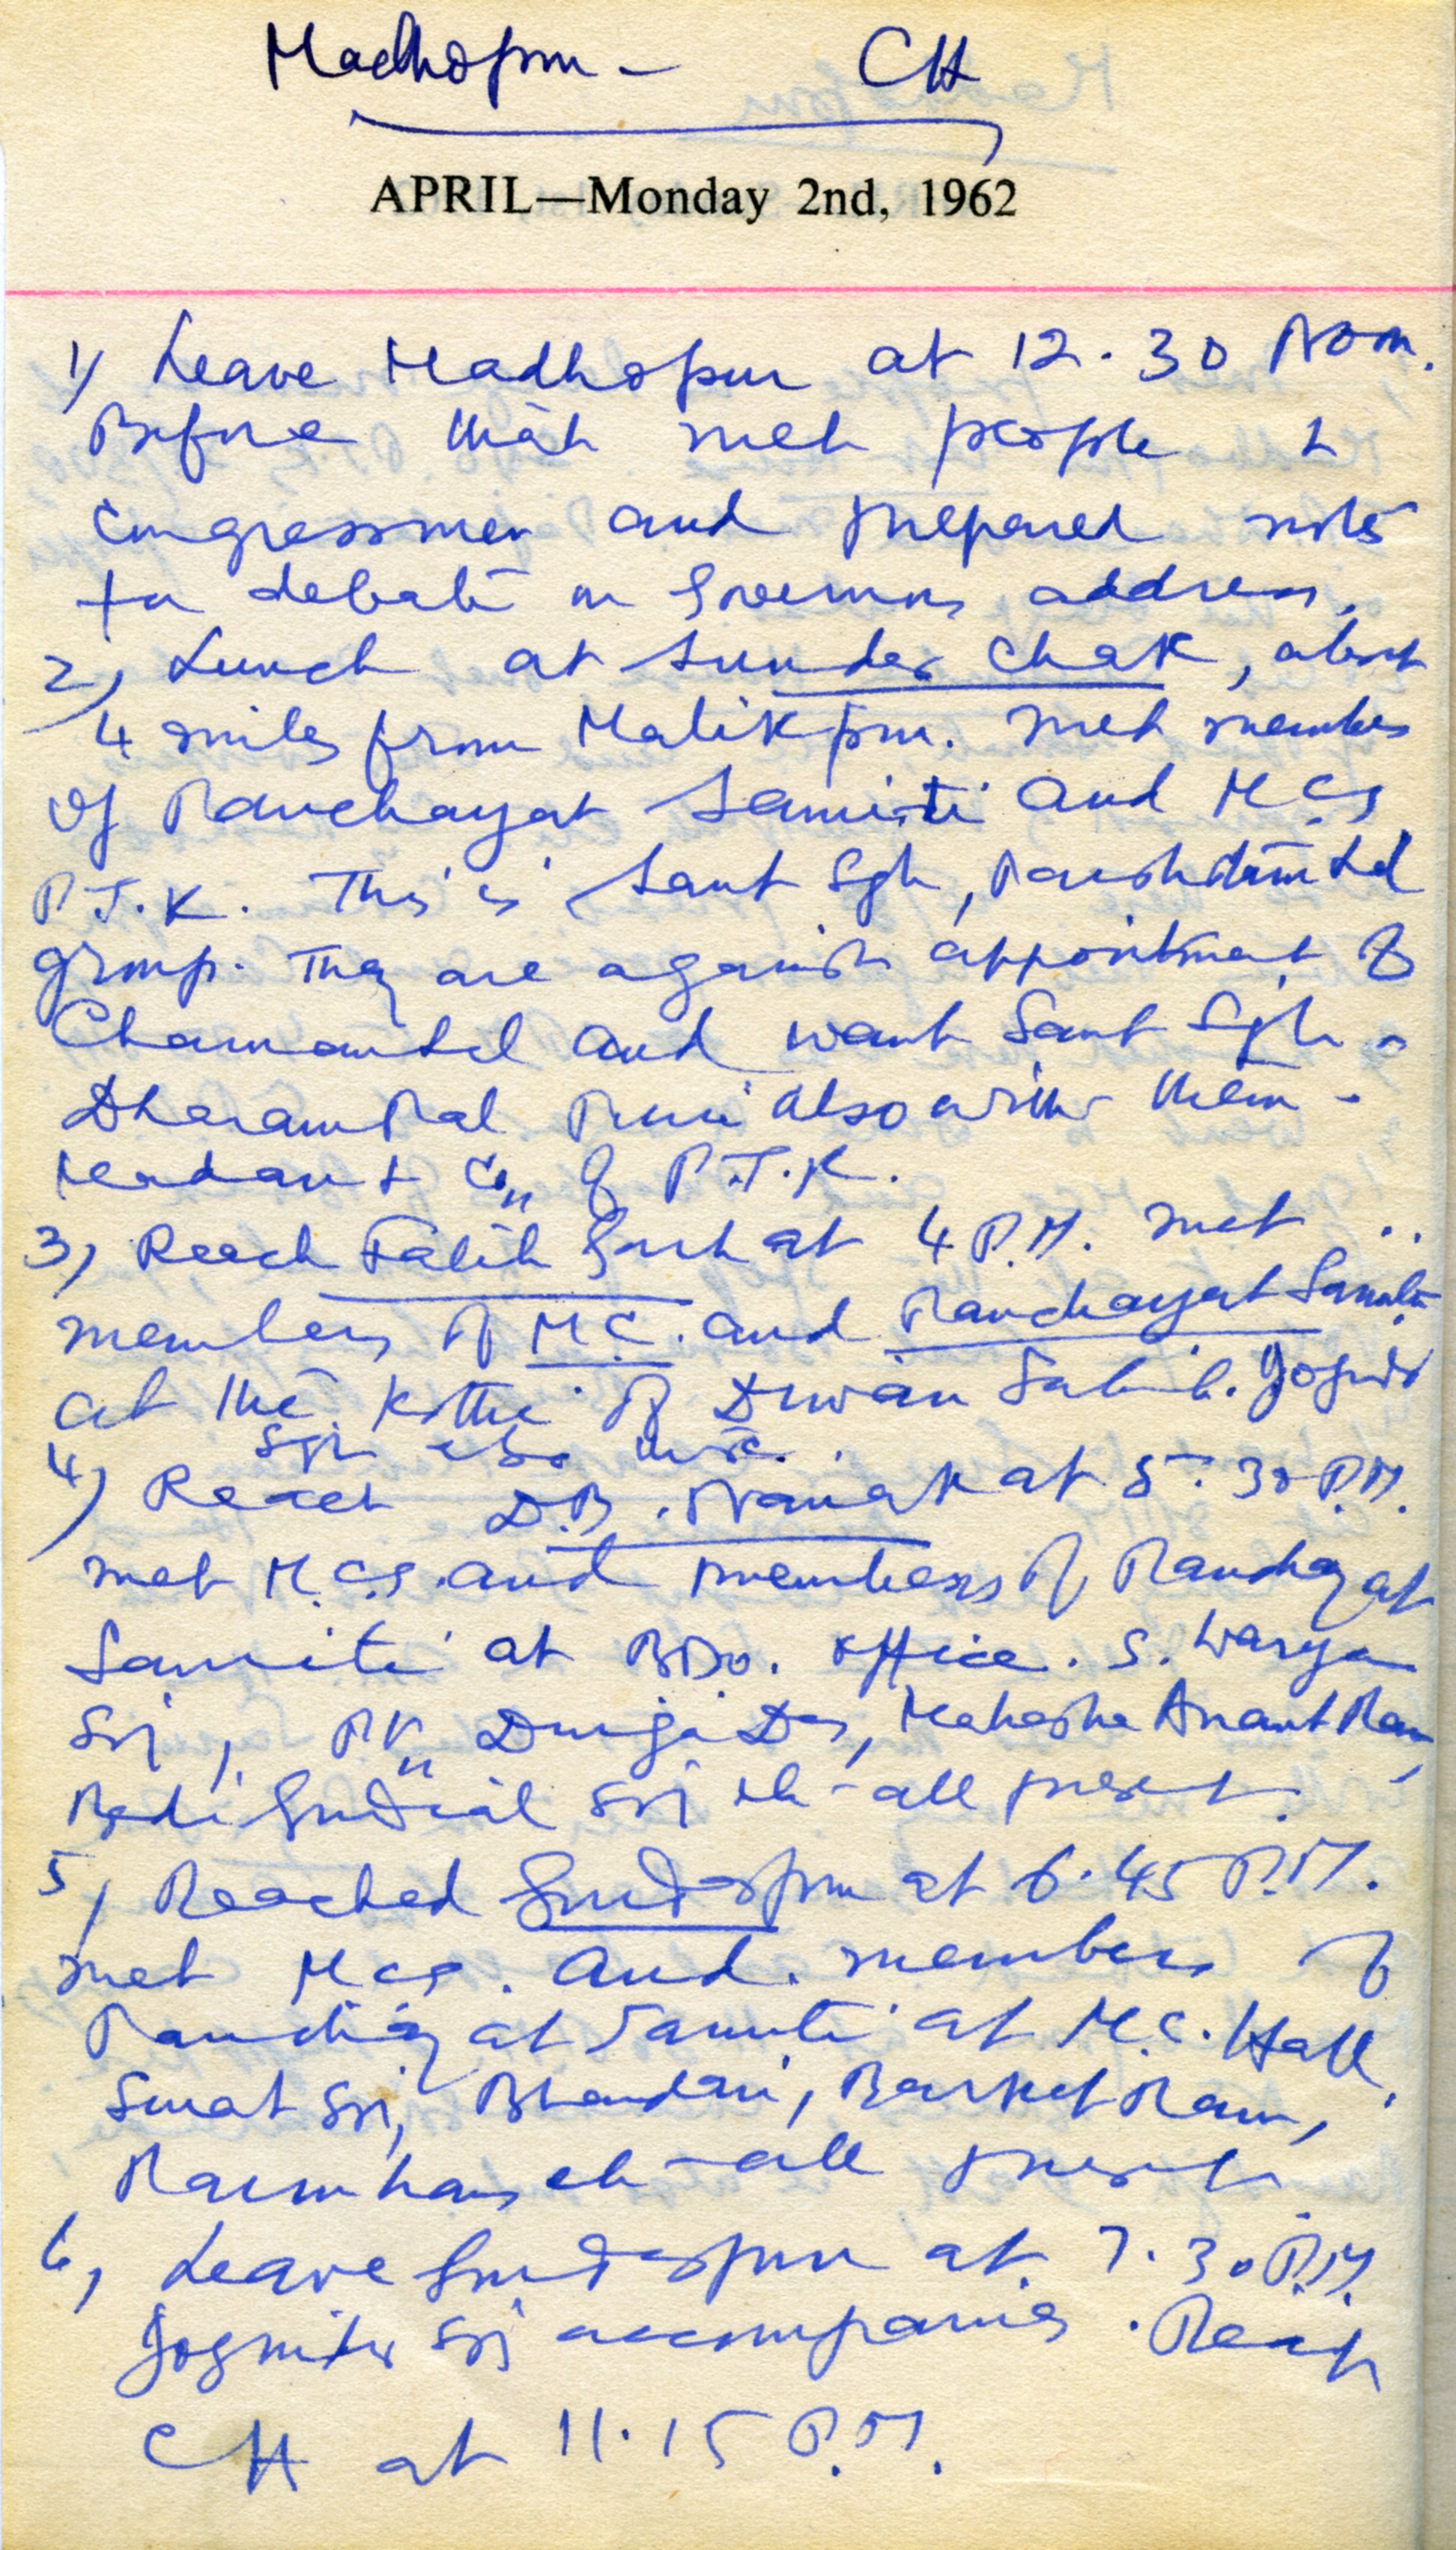 Madhopur - CH
APRIL—Monday 2nd, 1962
1) Leave Madhopur at 12.30 Noon.
Before that met people &
Congressmen and prepared notes
for debate on Governors address.
2) Lunch at Sunder Chak, about
4 miles from Malikpur. Met members
of Panchayat Samiti and M.Cs
P.T.K. This is Sant Sgh,
group. They are against appointment of
Chamanlal and want Sant Sgh -
Dharam Pal Puri also with them -
of P.T.K.
3) Reach Fateh Garh at 4 P.M. Met
members of M.C. and Panchayat Samiti
at the Kothi of Diwan Sahib. Joginder
Sgh also there.
4) Reach D.B. Nanak at 5.30 P.M.
Met M.Cs and members of Panchayat
Samiti at BDO. office. S. Waryam
Sgh, Durga Das, Mahasha Anant Ram,
Bedi Gurdial Sgh etc - all present.
5) Reached Gurdaspur at 6.45 P.M.
Met M.Cs. and members of
Panchayat Samiti at M.C. Hall.
Surat Sgh, Bhandari, Barket Ram,
etc - all present.
6) Leave Gurdaspur at 7.30 P.M.
Joginder Sgh accompanies. Reach
CH at 11.15 P.M.